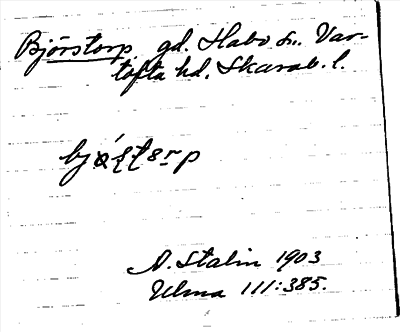 Björstorp gd. Habo sn. Var-
tofta hd. Skarab. l.
A. Stalin 1903
Ulma 111:385.